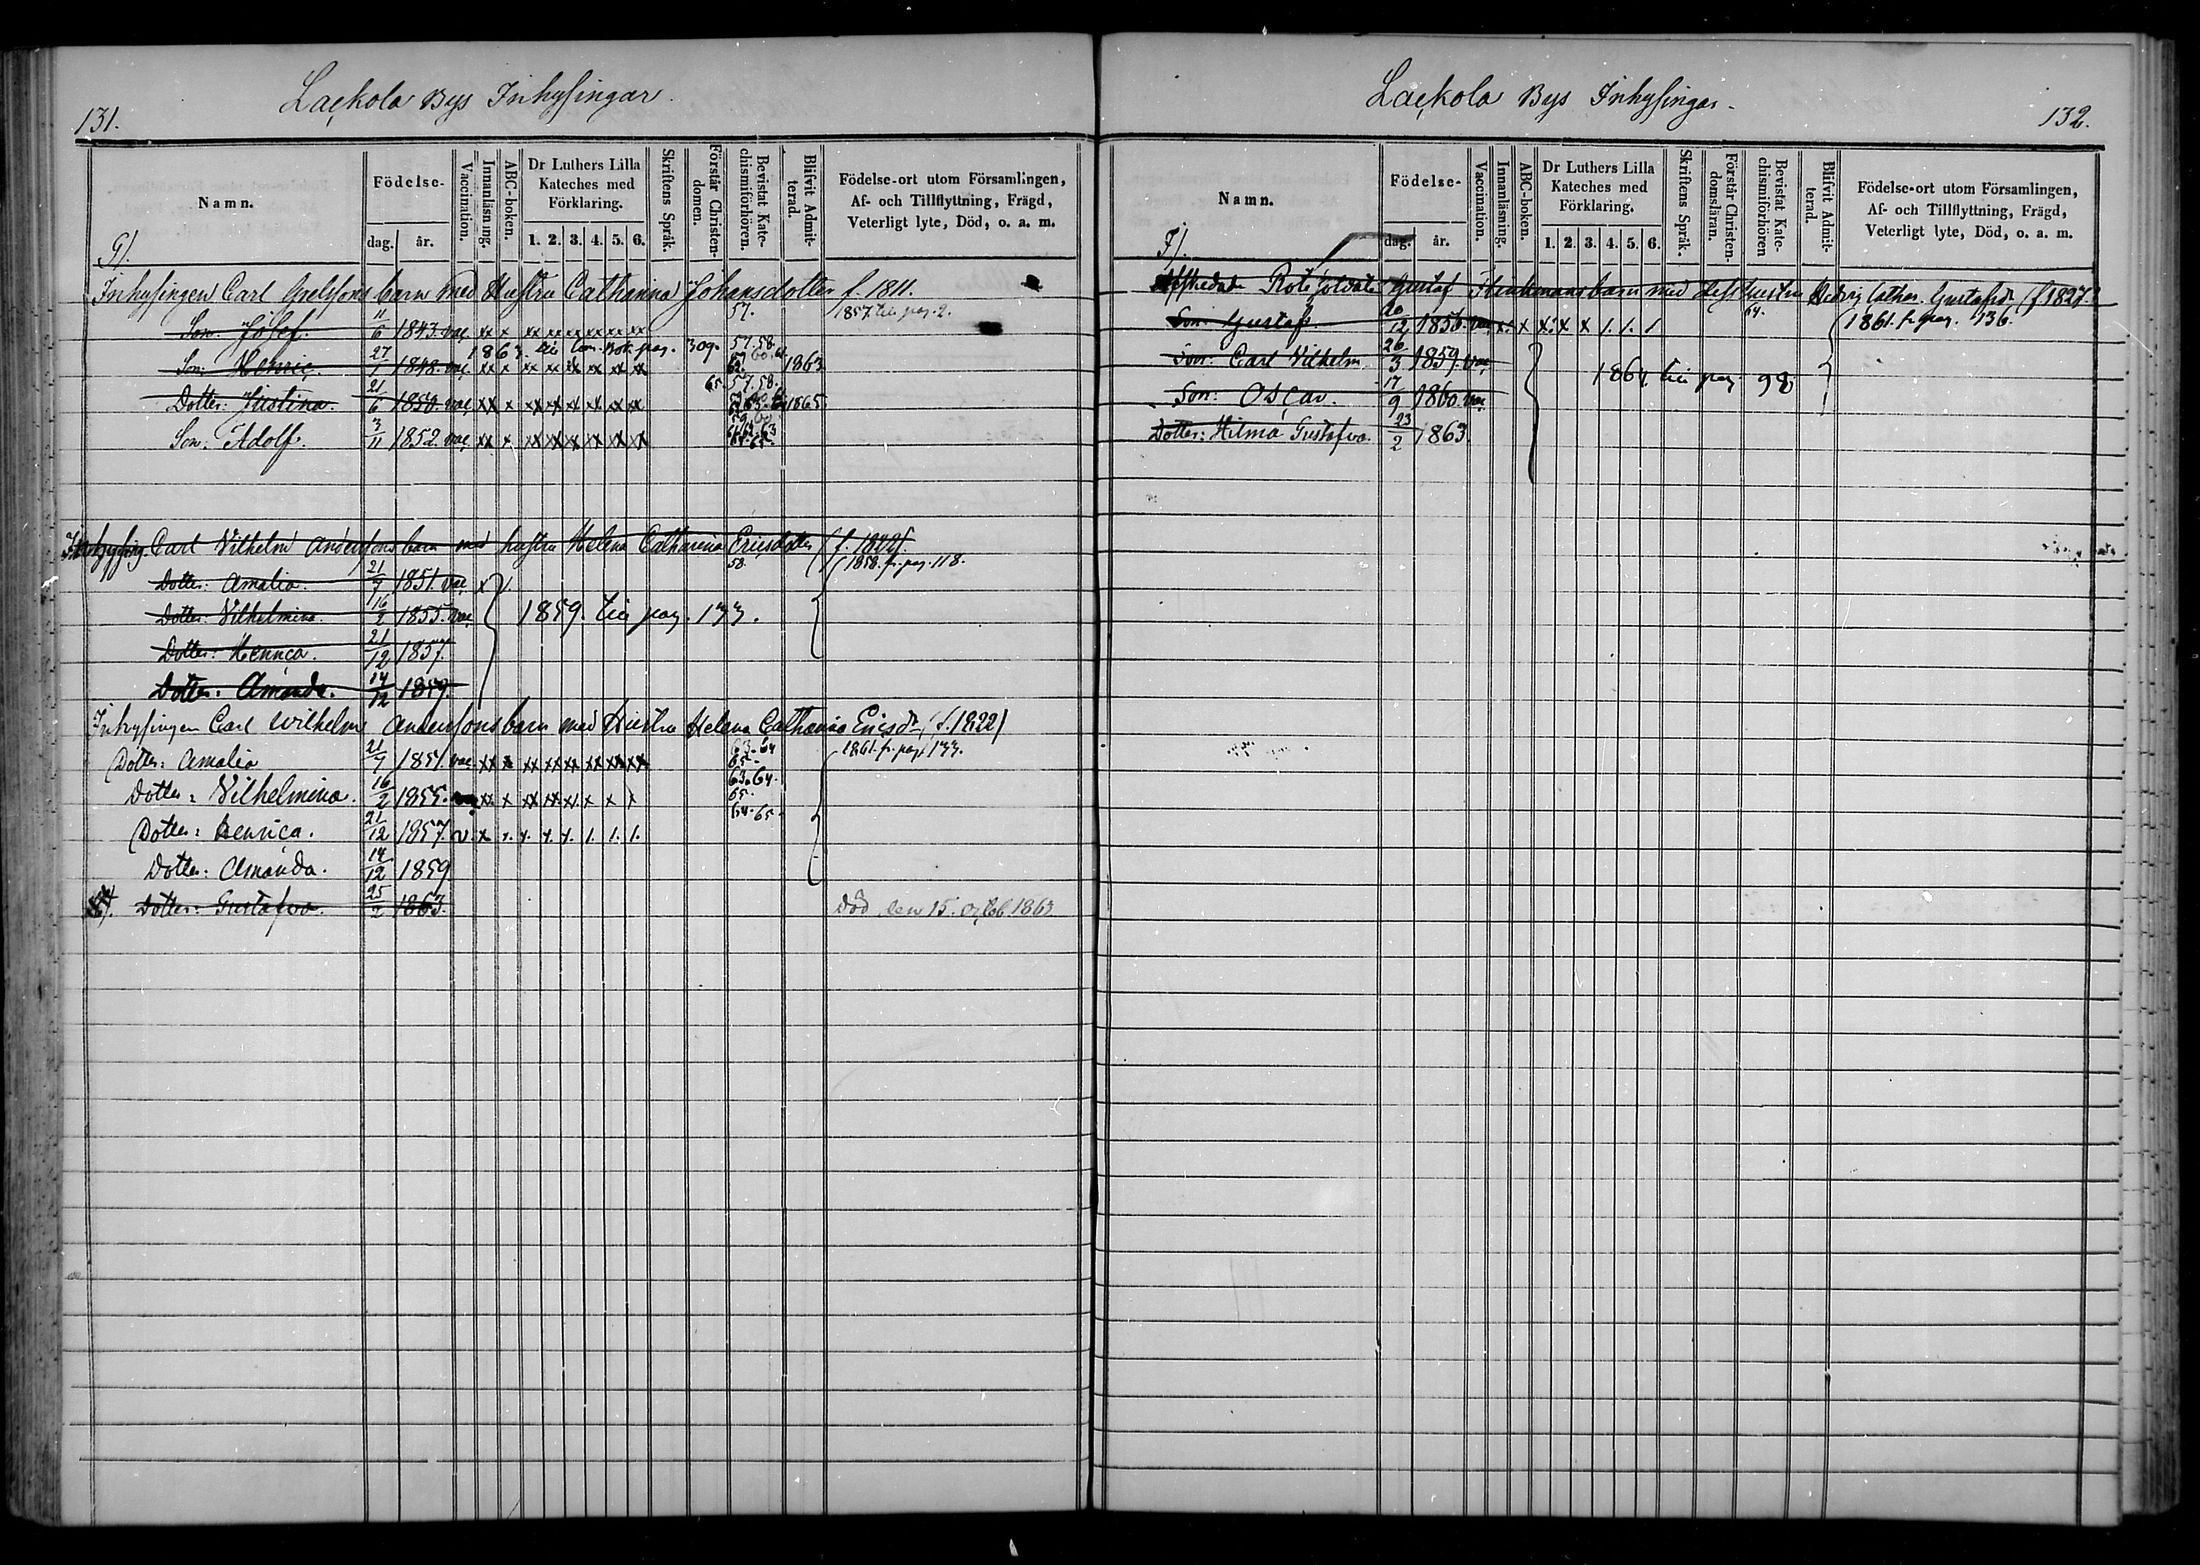 131.
Lackola Bys Inhysingar.
Namn.
Födelse-
dag.
år.
Vaccination.
Innanläsning.
ABC-boken.
Dr Luthers Lilla
Kateches med
Förklaring.
1. 2. 3. 4. 5. 6.
Skriftens Språk.
Förstår Christen-
domen.
Bevistat Kate-
chismiförhören.
Blifvit Admit-
terad.
Födelse-ort utom Församlingen,
Af- och Tillflyttning, Frägd,
Veterligt lyte, Död, o. a. m.
Inhysingen Carl Grelssons barn med Hustru Catharina Johansdotter f. 1811.
Son: Josef. 11/6 1843. vac. xx x xx xx xx xx xx xx 57. 1857. till pag. 2.
1863. till Com. Bok pag. 309.
Son: Henric. 27/1 1848. vac. xx x xx xx xx xx xx xx 57. 58. 1863
Dotter: Justina. 21/6 1850. vac. xx x xx xx xx xx xx xx 65. 57. 58. 1865.
Son: Adolf. 3/11 1852. vac. xx x xx xx xx xx xx xx
Carl Vilhelm Anderssons barn med hustru Helena Catharina Ericsdotter
Dotter: Amalia. 21/7 1851. vac. x 58. 1858. fr. pag. 118.
Dotter: Vilhelmina. 16/2 1855. vac. 1859. till pag. 133.
Dotter: Henrica. 21/12 1857.
Dotter: Amanda. 14/12 1859.
Inhysingen Carl Wilhelm Anderssons barn med Hustru Helena Catharina Ericsdr (f. 1822)
Dotter: Amalia 21/7 1851. vac. xx x xx xx xx xx xx xx 63. 64 65. 1861. fr. pag. 133.
Dotter: Vilhelmina. 16/2 1855. xx x xx xx x. x x 63. 64. 65.
Dotter: Henrica. 21/12 1857. v. x x. x. x. x. 1. 1. 1. 64. 65.
Dotter: Amanda. 14/12 1859.
Dotter: Gustafva. 25/2 1863. Död den 15. Octob. 1863
132.
Lackola Bys Inhysingar.
Namn.
Födelse-
dag.
år.
Vaccination.
Innanläsning.
ABC-boken.
Dr Luthers Lilla
Kateches med
Förklaring.
1. 2. 3. 4. 5. 6.
Skriftens Språk.
Förstår Christen-
domsläran.
Bevistat Kate-
chismiförhören
Blifvit Admit-
terad.
Födelse-ort utom Församlingen,
Af- och Tillflyttning, Frägd,
Veterligt lyte, Död, o. a. m.
Afskedade Rote Soldaten Gustaf Flinkmans barn med dess Hustru Hedvig Cathar. Gustafsdr (f. 1827.)
Son: Gustaf. 20/12 1856. vac. x. x x. x x 1. 1. 1 64. 1861. fr. pag. 136.
Son: Carl Vilhelm 26/3 1859. vac.
Son: Oscar. 17/9 1860. vac. 1864. till pag. 98
Dotter: Hilma Gustafva. 23/2 1863.